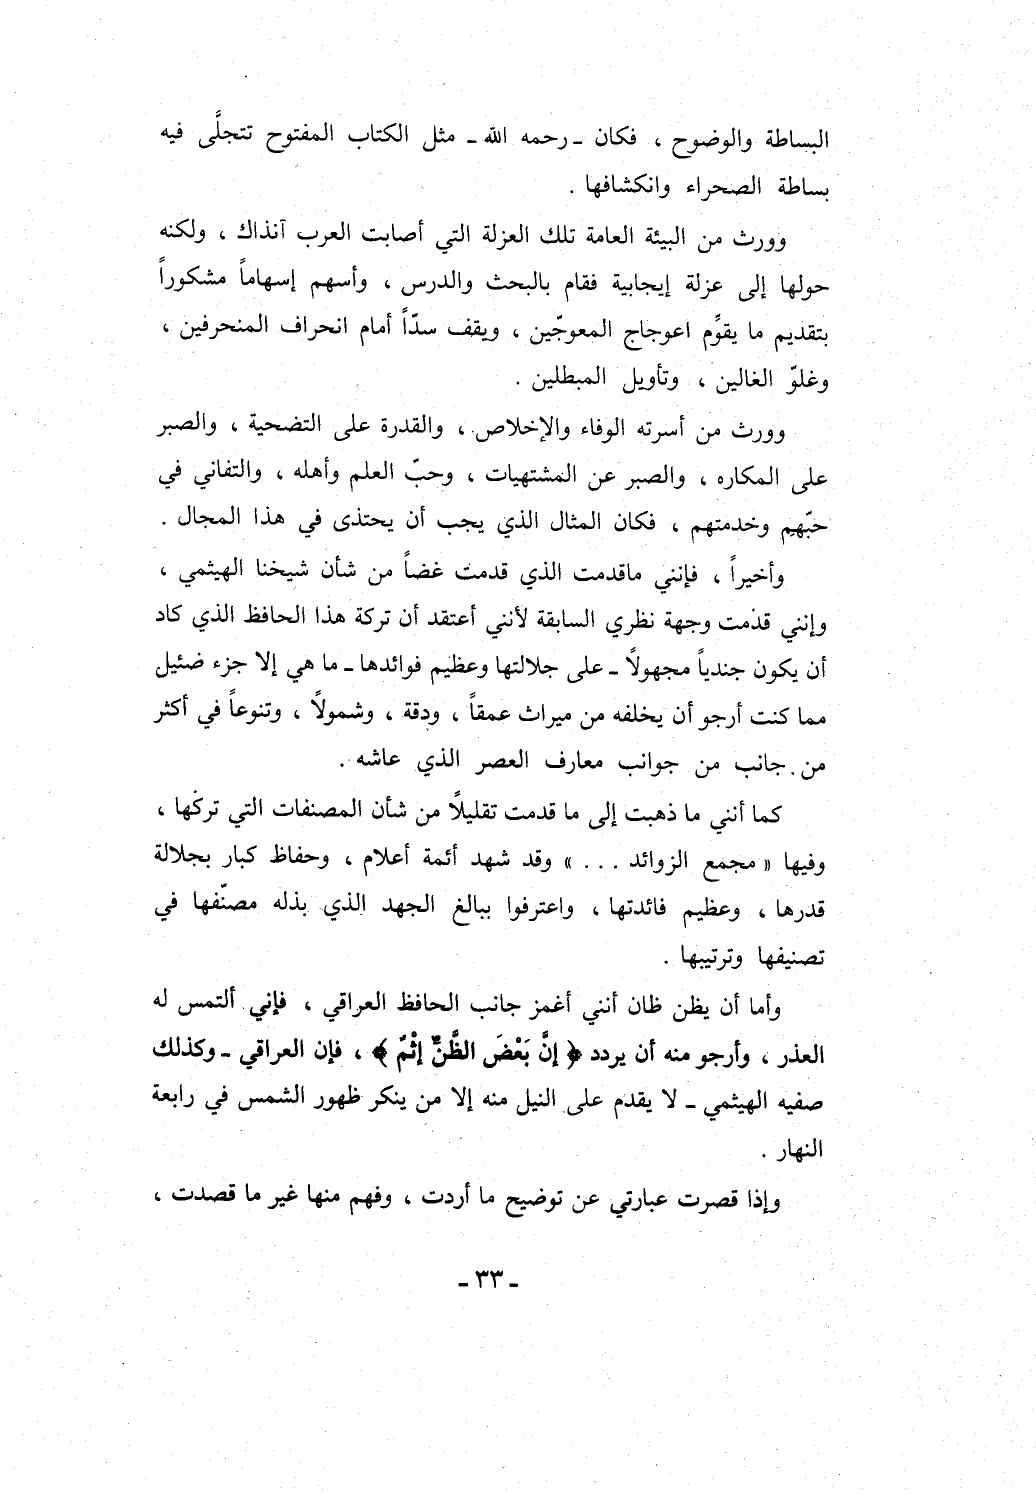 البساطة والوضوح ، فكان ـ رحمه الله ـ مثل الكتاب المفتوح تتجلَّى فيه
بساطة الصحراء وانكشافها .
وورث من البيئة العامة تلك العزلة التي أصابت العرب آنذاك ، ولكنه
حولها إلى عزلة إيجابية فقام بالبحث والدرس ، وأسهم إسهاماً مشكوراً
بتقديم ما يقوِّم اعوجاج المعوجّين ، ويقف سدّاً أمام انحراف المنحرفين ،
وغلوّ الغالين ، وتأويل المبطلين .
وورث من أسرته الوفاء والإخلاص ، والقدرة على التضحية ، والصبر
على المكاره ، والصبر عن المشتهيات ، وحبّ العلم وأهله ، والتفاني في
حبّهم وخدمتهم ، فكان المثال الذي يجب أن يحتذى في هذا المجال .
وأخيراً ، فإنني ماقدمت الذي قدمت غضاً من شأن شيخنا الهيثمي ،
وإنني قدمت وجهة نظري السابقة لأنني أعتقد أن تركة هذا الحافظ الذي كاد
أن يكون جندياً مجهولاً ـ على جلالتها وعظيم فوائدها ـ ما هي إلا جزء ضئيل
مما كنت أرجو أن يخلفه من ميراث عمقاً ، ودقة ، وشمولاً ، وتنوعاً في أكثر
من جانب من جوانب معارف العصر الذي عاشه .
كما أنني ما ذهبت إلى ما قدمت تقليلاً من شأن المصنفات التي تركها ،
وفيها « مجمع الزوائد . . . » وقد شهد أئمة أعلام ، وحفاظ كبار بجلالة
قدرها ، وعظيم فائدتها ، واعترفوا ببالغ الجهد الذي بذله مصنّفها في
تصنيفها وترتيبها .
وأما أن يظن ظان أنني أغمز جانب الحافظ العراقي ، فإني ألتمس له
العذر ، وأرجو منه أن يردد ﴿ إنَّ بَعْضَ الظَّنِّ إثْمٌ ﴾ ، فإن العراقي ـ وكذلك
صفيه الهيثمي ـ لا يقدم على النيل منه إلا من ينكر ظهور الشمس في رابعة
النهار .
وإذا قصرت عبارتي عن توضيح ما أردت ، وفهم منها غير ما قصدت ،
ـ ٣٣ ـ